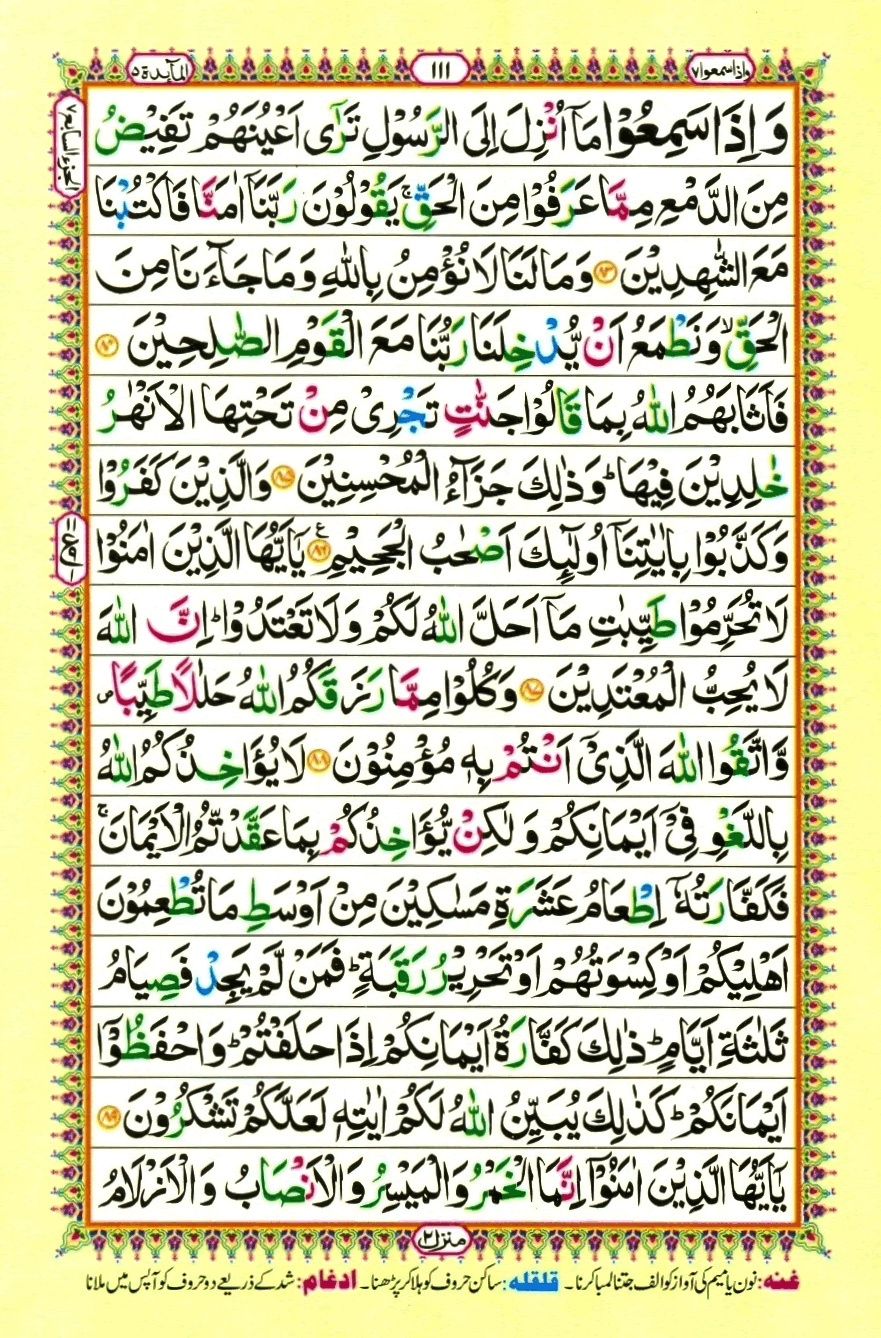 واذاسمعوا ٧
١١١
المآىِٕدة ٥
الجزء السابع ٧
وَ اِذَا سَمِعُوْا مَاۤ اُنْزِلَ اِلَى الرَّسُوْلِ تَرٰۤى اَعْیُنَهُمْ تَفِیْضُ
مِنَ الدَّمْعِ مِمَّا عَرَفُوْا مِنَ الْحَقِّ ۚ یَقُوْلُوْنَ رَبَّنَاۤ اٰمَنَّا فَاكْتُبْنَا
مَعَ الشّٰهِدِیْنَ ﴿۸۳﴾ وَ مَا لَنَا لَا نُؤْمِنُ بِاللّٰهِ وَ مَا جَآءَنَا مِنَ
الْحَقِّ ۙ وَ نَطْمَعُ اَنْ یُّدْخِلَنَا رَبُّنَا مَعَ الْقَوْمِ الصّٰلِحِیْنَ ﴿۸۴﴾
فَاَثَابَهُمُ اللّٰهُ بِمَا قَالُوْا جَنّٰتٍ تَجْرِیْ مِنْ تَحْتِهَا الْاَنْهٰرُ
خٰلِدِیْنَ فِیْهَا ؕ وَ ذٰلِكَ جَزَآءُ الْمُحْسِنِیْنَ ﴿۸۵﴾ وَ الَّذِیْنَ كَفَرُوْا
وَ كَذَّبُوْا بِاٰیٰتِنَاۤ اُولٰٓىِٕكَ اَصْحٰبُ الْجَحِیْمِ ﴿۸۶﴾ ع یٰۤاَیُّهَا الَّذِیْنَ اٰمَنُوْا
لَا تُحَرِّمُوْا طَیِّبٰتِ مَاۤ اَحَلَّ اللّٰهُ لَكُمْ وَ لَا تَعْتَدُوْا ؕ اِنَّ اللّٰهَ
لَا یُحِبُّ الْمُعْتَدِیْنَ ﴿۸۷﴾ وَ كُلُوْا مِمَّا رَزَقَكُمُ اللّٰهُ حَلٰلًا طَیِّبًا ۪
وَّ اتَّقُوا اللّٰهَ الَّذِیْۤ اَنْتُمْ بِهٖ مُؤْمِنُوْنَ ﴿۸۸﴾ لَا یُؤَاخِذُكُمُ اللّٰهُ
بِاللَّغْوِ فِیْۤ اَیْمَانِكُمْ وَ لٰكِنْ یُّؤَاخِذُكُمْ بِمَا عَقَّدْتُّمُ الْاَیْمَانَ ۚ
فَكَفَّارَتُهٗۤ اِطْعَامُ عَشَرَةِ مَسٰكِیْنَ مِنْ اَوْسَطِ مَا تُطْعِمُوْنَ
اَهْلِیْكُمْ اَوْ كِسْوَتُهُمْ اَوْ تَحْرِیْرُ رَقَبَةٍ ؕ فَمَنْ لَّمْ یَجِدْ فَصِیَامُ
ثَلٰثَةِ اَیَّامٍ ؕ ذٰلِكَ كَفَّارَةُ اَیْمَانِكُمْ اِذَا حَلَفْتُمْ ؕ وَ احْفَظُوْۤا
اَیْمَانَكُمْ ؕ كَذٰلِكَ یُبَیِّنُ اللّٰهُ لَكُمْ اٰیٰتِهٖ لَعَلَّكُمْ تَشْكُرُوْنَ ﴿۸۹﴾
یٰۤاَیُّهَا الَّذِیْنَ اٰمَنُوْۤا اِنَّمَا الْخَمْرُ وَ الْمَیْسِرُ وَ الْاَنْصَابُ وَ الْاَزْلَامُ
منزل ٢
غنہ: نون یا میم کی آواز کو الف جتنا لمبا کرنا۔ قلقلہ: ساکن حروف کو ہلا کر پڑھنا۔ ادغام: شد کے ذریعے دو حروف کو آپس میں ملانا